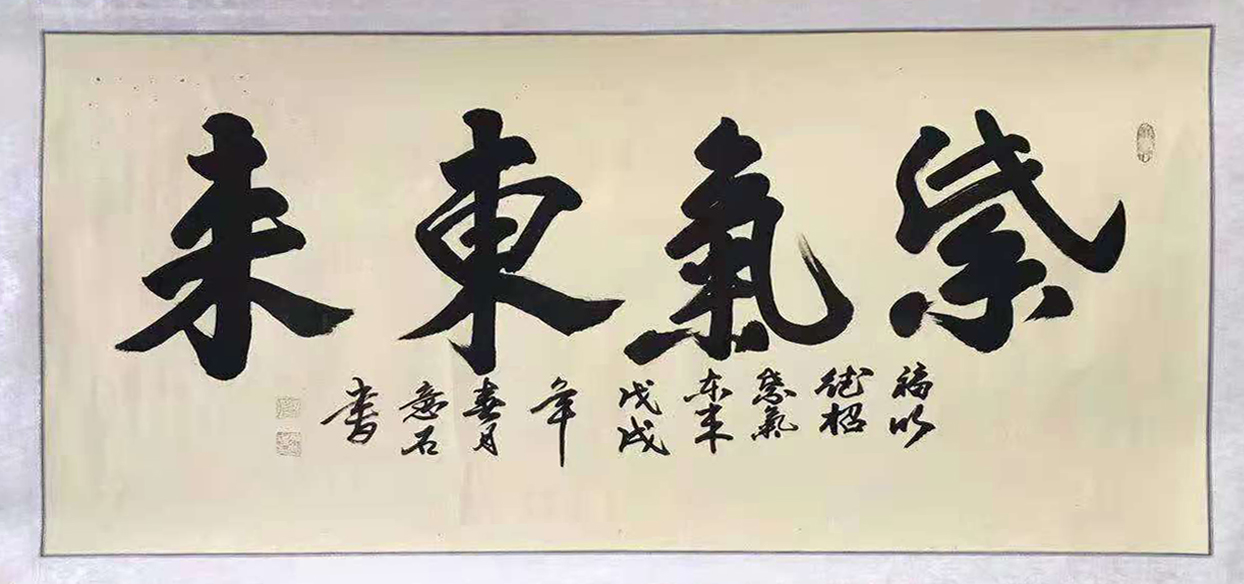 紫氣東来
福以
德招
紫氣
东来
戊戌
年
春月
意石
書